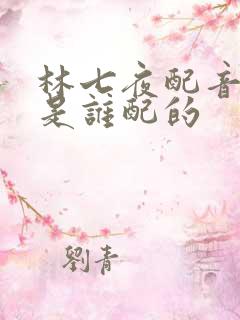 林七夜配音
是誰配的
劉青